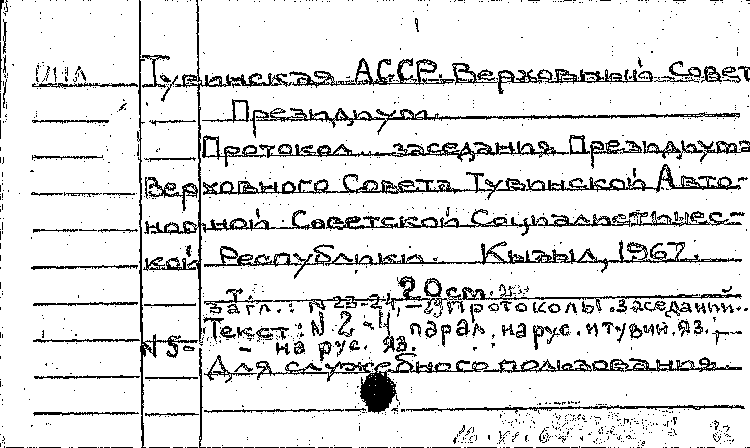 Тувинская АССР. Верховный Совет
Президиум.
Протокол... заседания Президиума
Верховного Совета Тувинской Авто-
номной Советской Социалистичес-
кой Республики. Кызыл, 1967.
20см.
Загл.: N 23-24, -29 Протоколы заседаний..
Текст: N 2-4 парал. на рус. и тувин. яз.;
N 5- - на рус. яз.
Для служебного пользования